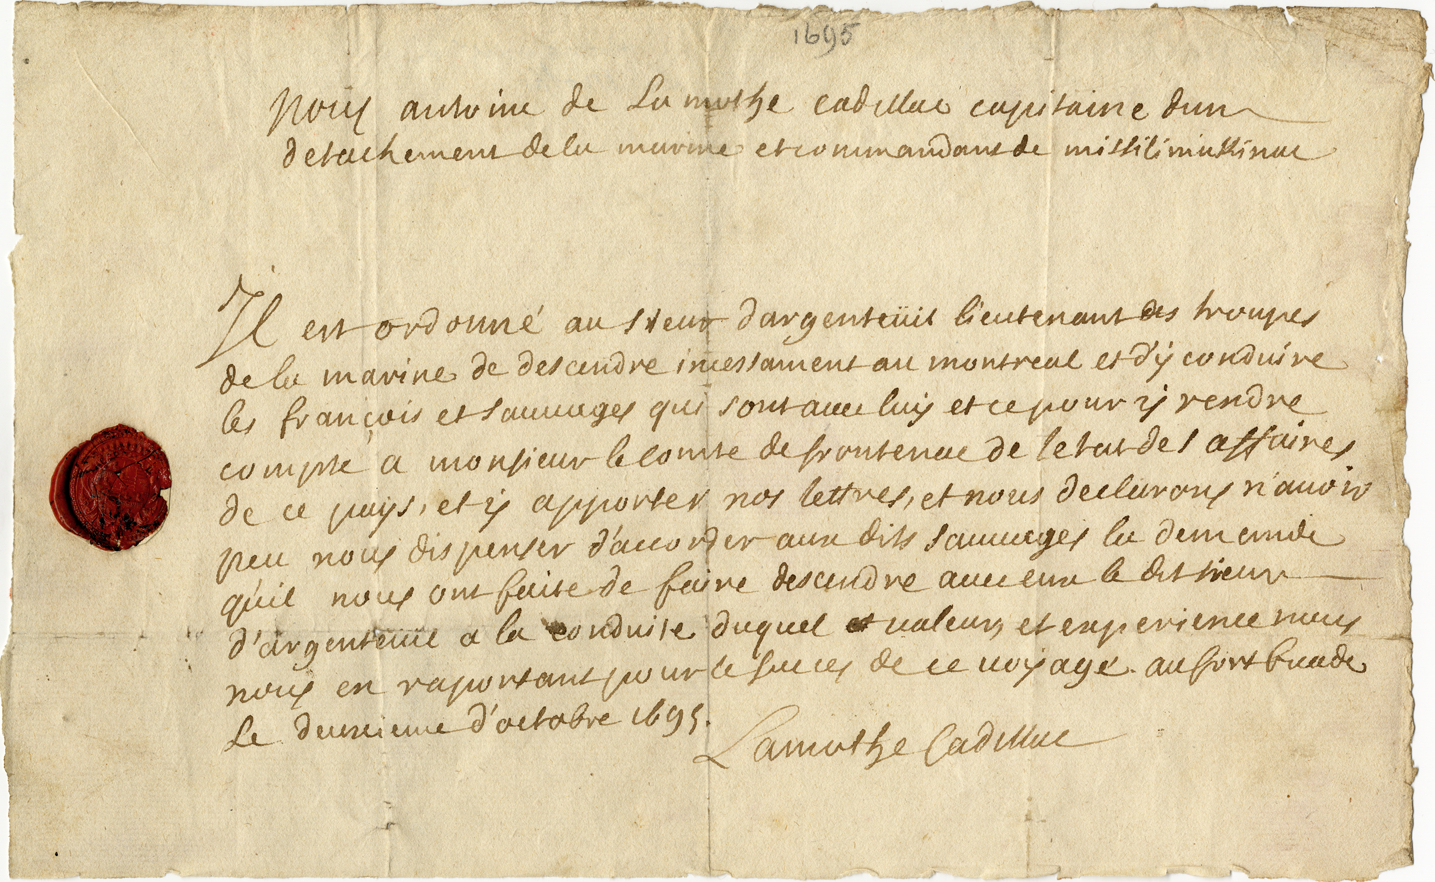 1695
Nous antoine de Lamothe Cadillac capitaine dun
detachement de la marine et commandant de missilimakinac
Il est ordonné au sieur d'argenteüil lieutenant des troupes
de la marine de descendre incessament au montreal et d'ÿ conduire
les françois et sauuages qui sont auec luÿ et ce pour ÿ rendre
compte a monsieur le comte de frontenac de letat des affaires
de ce pays, et ÿ apporter nos lettres, et nous declarons n'auoir
peu nous dispenser d'accorder aux dits sauuages la demande
qu'il nous ont faite de faire descendre auec eux le dit sieur
d'argenteüil a la conduite duquel et ualeur, et experience nous
nous en raportant pour le succes de ce uoÿage. au fort buade
Le deuxieme d'octobre 1695.
Lamothe Cadillac